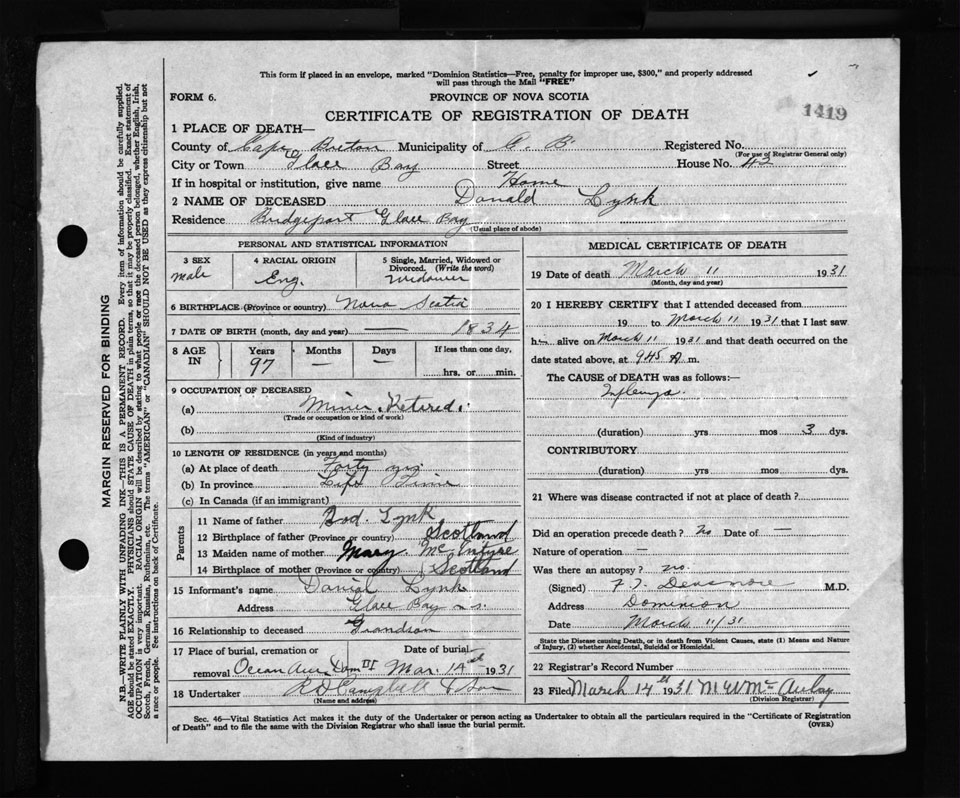 This form if placed in an envelope, marked "Dominion Statistics—Free, penalty for improper use, $300," and properly addressed
will pass through the Mail "FREE"
FORM 6.
PROVINCE OF NOVA SCOTIA
1419
CERTIFICATE OF REGISTRATION OF DEATH
1 PLACE OF DEATH—
County of Cape Breton Municipality of C. B. Registered No.
(For use of Registrar General only)
City or Town Glace Bay Street House No. 42
If in hospital or institution, give name Home
2 NAME OF DECEASED Donald Lynk
Residence Bridgeport Glace Bay
(Usual place of abode)
PERSONAL AND STATISTICAL INFORMATION
3 SEX male
4 RACIAL ORIGIN Eng.
5 Single, Married, Widowed or Divorced. (Write the word) Widower
6 BIRTHPLACE (Province or country) Nova Scotia
7 DATE OF BIRTH (month, day and year) — 1834
8 AGE IN Years 97 Months — Days — If less than one day, hrs. or min.
9 OCCUPATION OF DECEASED
(a) Miner. Retired.
(Trade or occupation or kind of work)
(b)
(Kind of industry)
10 LENGTH OF RESIDENCE (in years and months)
(a) At place of death Forty yrs
(b) In province Life Time
(c) In Canada (if an immigrant)
Parents
11 Name of father Rod. Lynk
12 Birthplace of father (Province or country) Scotland
13 Maiden name of mother Mary McIntyre
14 Birthplace of mother (Province or country) Scotland
15 Informant's name Daniel Lynk
Address Glace Bay N.S.
16 Relationship to deceased Grandson
17 Place of burial, cremation or removal Ocean Ave Dom II Date of burial Mar. 14th 1931
18 Undertaker Campbell & Son
(Name and address)
MEDICAL CERTIFICATE OF DEATH
19 Date of death March 11 1931
(Month, day and year)
20 I HEREBY CERTIFY that I attended deceased from
19 to March 11 1931 that I last saw
h alive on March 11 1931 and that death occurred on the
date stated above, at 945 A m.
The CAUSE of DEATH was as follows:—
Influenza
(duration) yrs mos 3 dys.
CONTRIBUTORY
(duration) yrs mos dys.
21 Where was disease contracted if not at place of death?
Did an operation precede death? no Date of —
Nature of operation —
Was there an autopsy? no.
(Signed) F. T. Densmore M.D.
Address Dominion
Date March 11/31
State the Disease causing Death, or in death from Violent Causes, state (1) Means and Nature
of Injury, (2) whether Accidental, Suicidal or Homicidal.
22 Registrar's Record Number
23 Filed March 14th 1931 McAulay
(Division Registrar)
Sec. 46—Vital Statistics Act makes it the duty of the Undertaker or person acting as Undertaker to obtain all the particulars required in the "Certificate of Registration
of Death" and to file the same with the Division Registrar who shall issue the burial permit. (OVER)
MARGIN RESERVED FOR BINDING
N.B.—WRITE PLAINLY WITH UNFADING INK—THIS IS A PERMANENT RECORD. Every item of information should be carefully supplied.
AGE should be stated EXACTLY. PHYSICIANS should STATE CAUSE OF DEATH in plain terms, so that it may be properly classified. Exact statement of
OCCUPATION is very important. RACIAL ORIGIN will be described by stating to what people or race the deceased person belonged, whether English, Irish,
Scotch, French, German, Russian, Ruthenian, etc. The terms "AMERICAN" or "CANADIAN" SHOULD NOT BE USED as they express citizenship but not
a race or people. See instructions on back of Certificate.